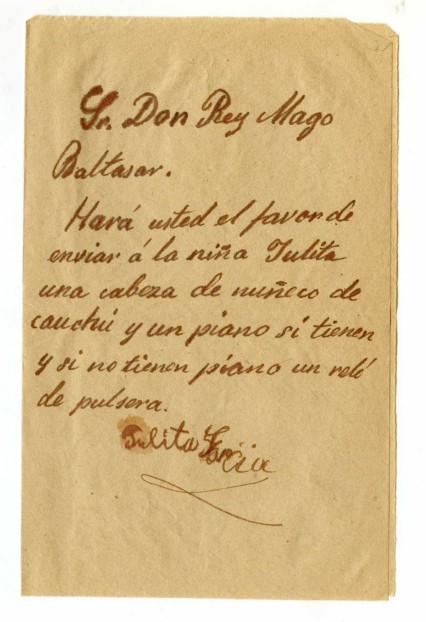 Sr. Don Rey Mago
Baltasar.
Hará usted el favor de
enviar á la niña Julita
una cabeza de muñeco de
cauchú y un piano si tienen
y si no tienen piano un reló
de pulsera.
Julita